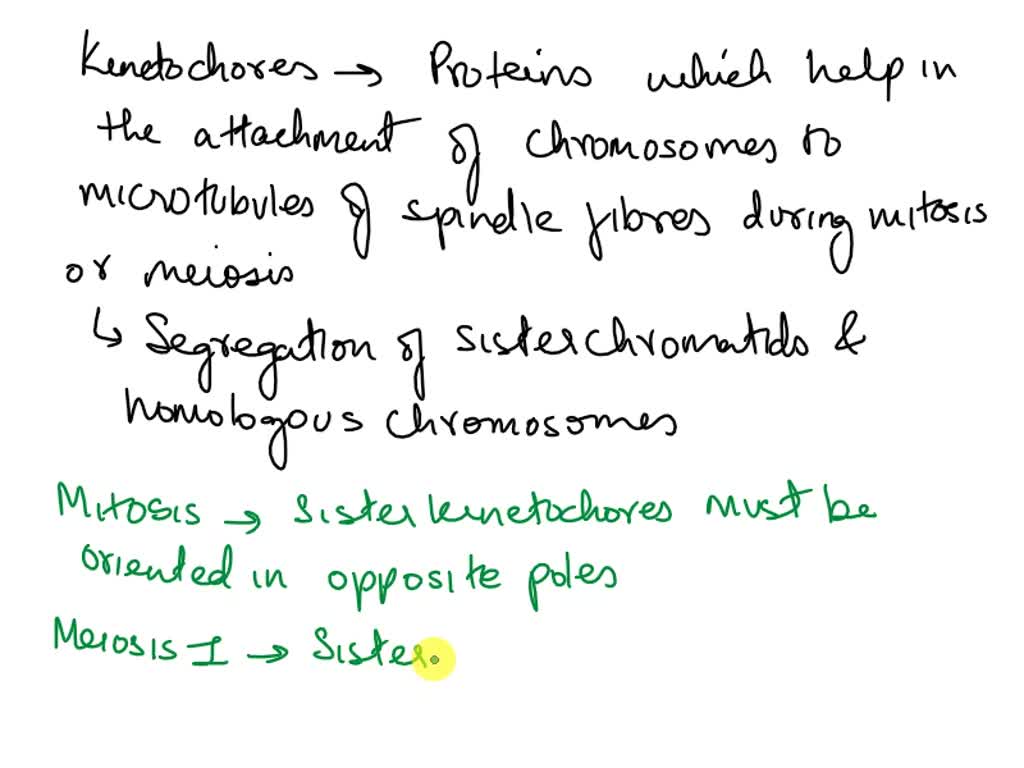 Kenetochores → Proteins which help in
the attachment of chromosomes to
microtubules of spindle fibres during mitosis
or meiosis
↳ Segregation of sister chromatids &
homologous chromosomes
Mitosis → Sister kenetochores must be
oriented in opposite poles
Meiosis I → Sister